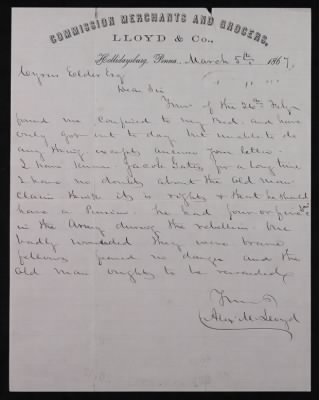 COMMISSION MERCHANTS AND GROCERS,
LLOYD & Co.,
Hollidaysburg, Penna., March 5th 1867
Cyrus Elder Esq
Dear Sir
Yours of the 26th Feby
found me confined to my Bed. and have
only got out to day Am unable to do
any thing except answer your letter.
I have known Jacob Gates for a long time
I have no doubts about the Old Man
Claim think its is rights & that he should
have a Pension. he had four or five sons
in the Army during the rebellion. One
badly wounded They were brave
fellows feared no danger and the
Old Man oughts to be rewarded
Yours &
Alex M Lloyd